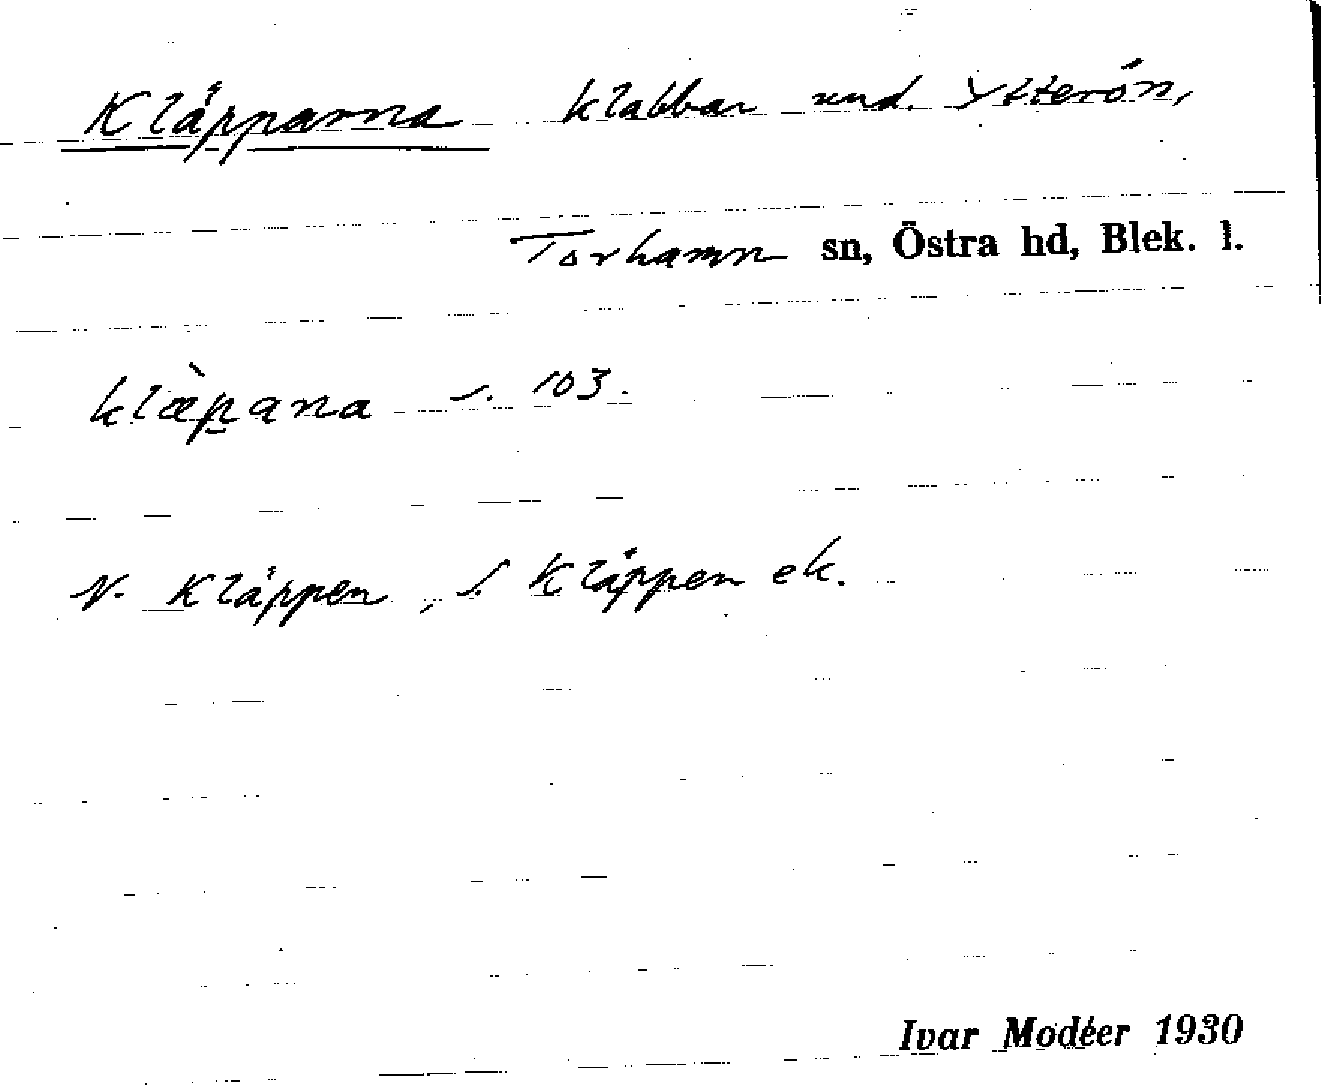 Kläpparna klabbar und. Ytterön,
Torhamn sn, Östra hd, Blek. l.
klæ̀p̠ana s. 103.
N. Kläppen, S. Kläppen ek.
Ivar Modéer 1930